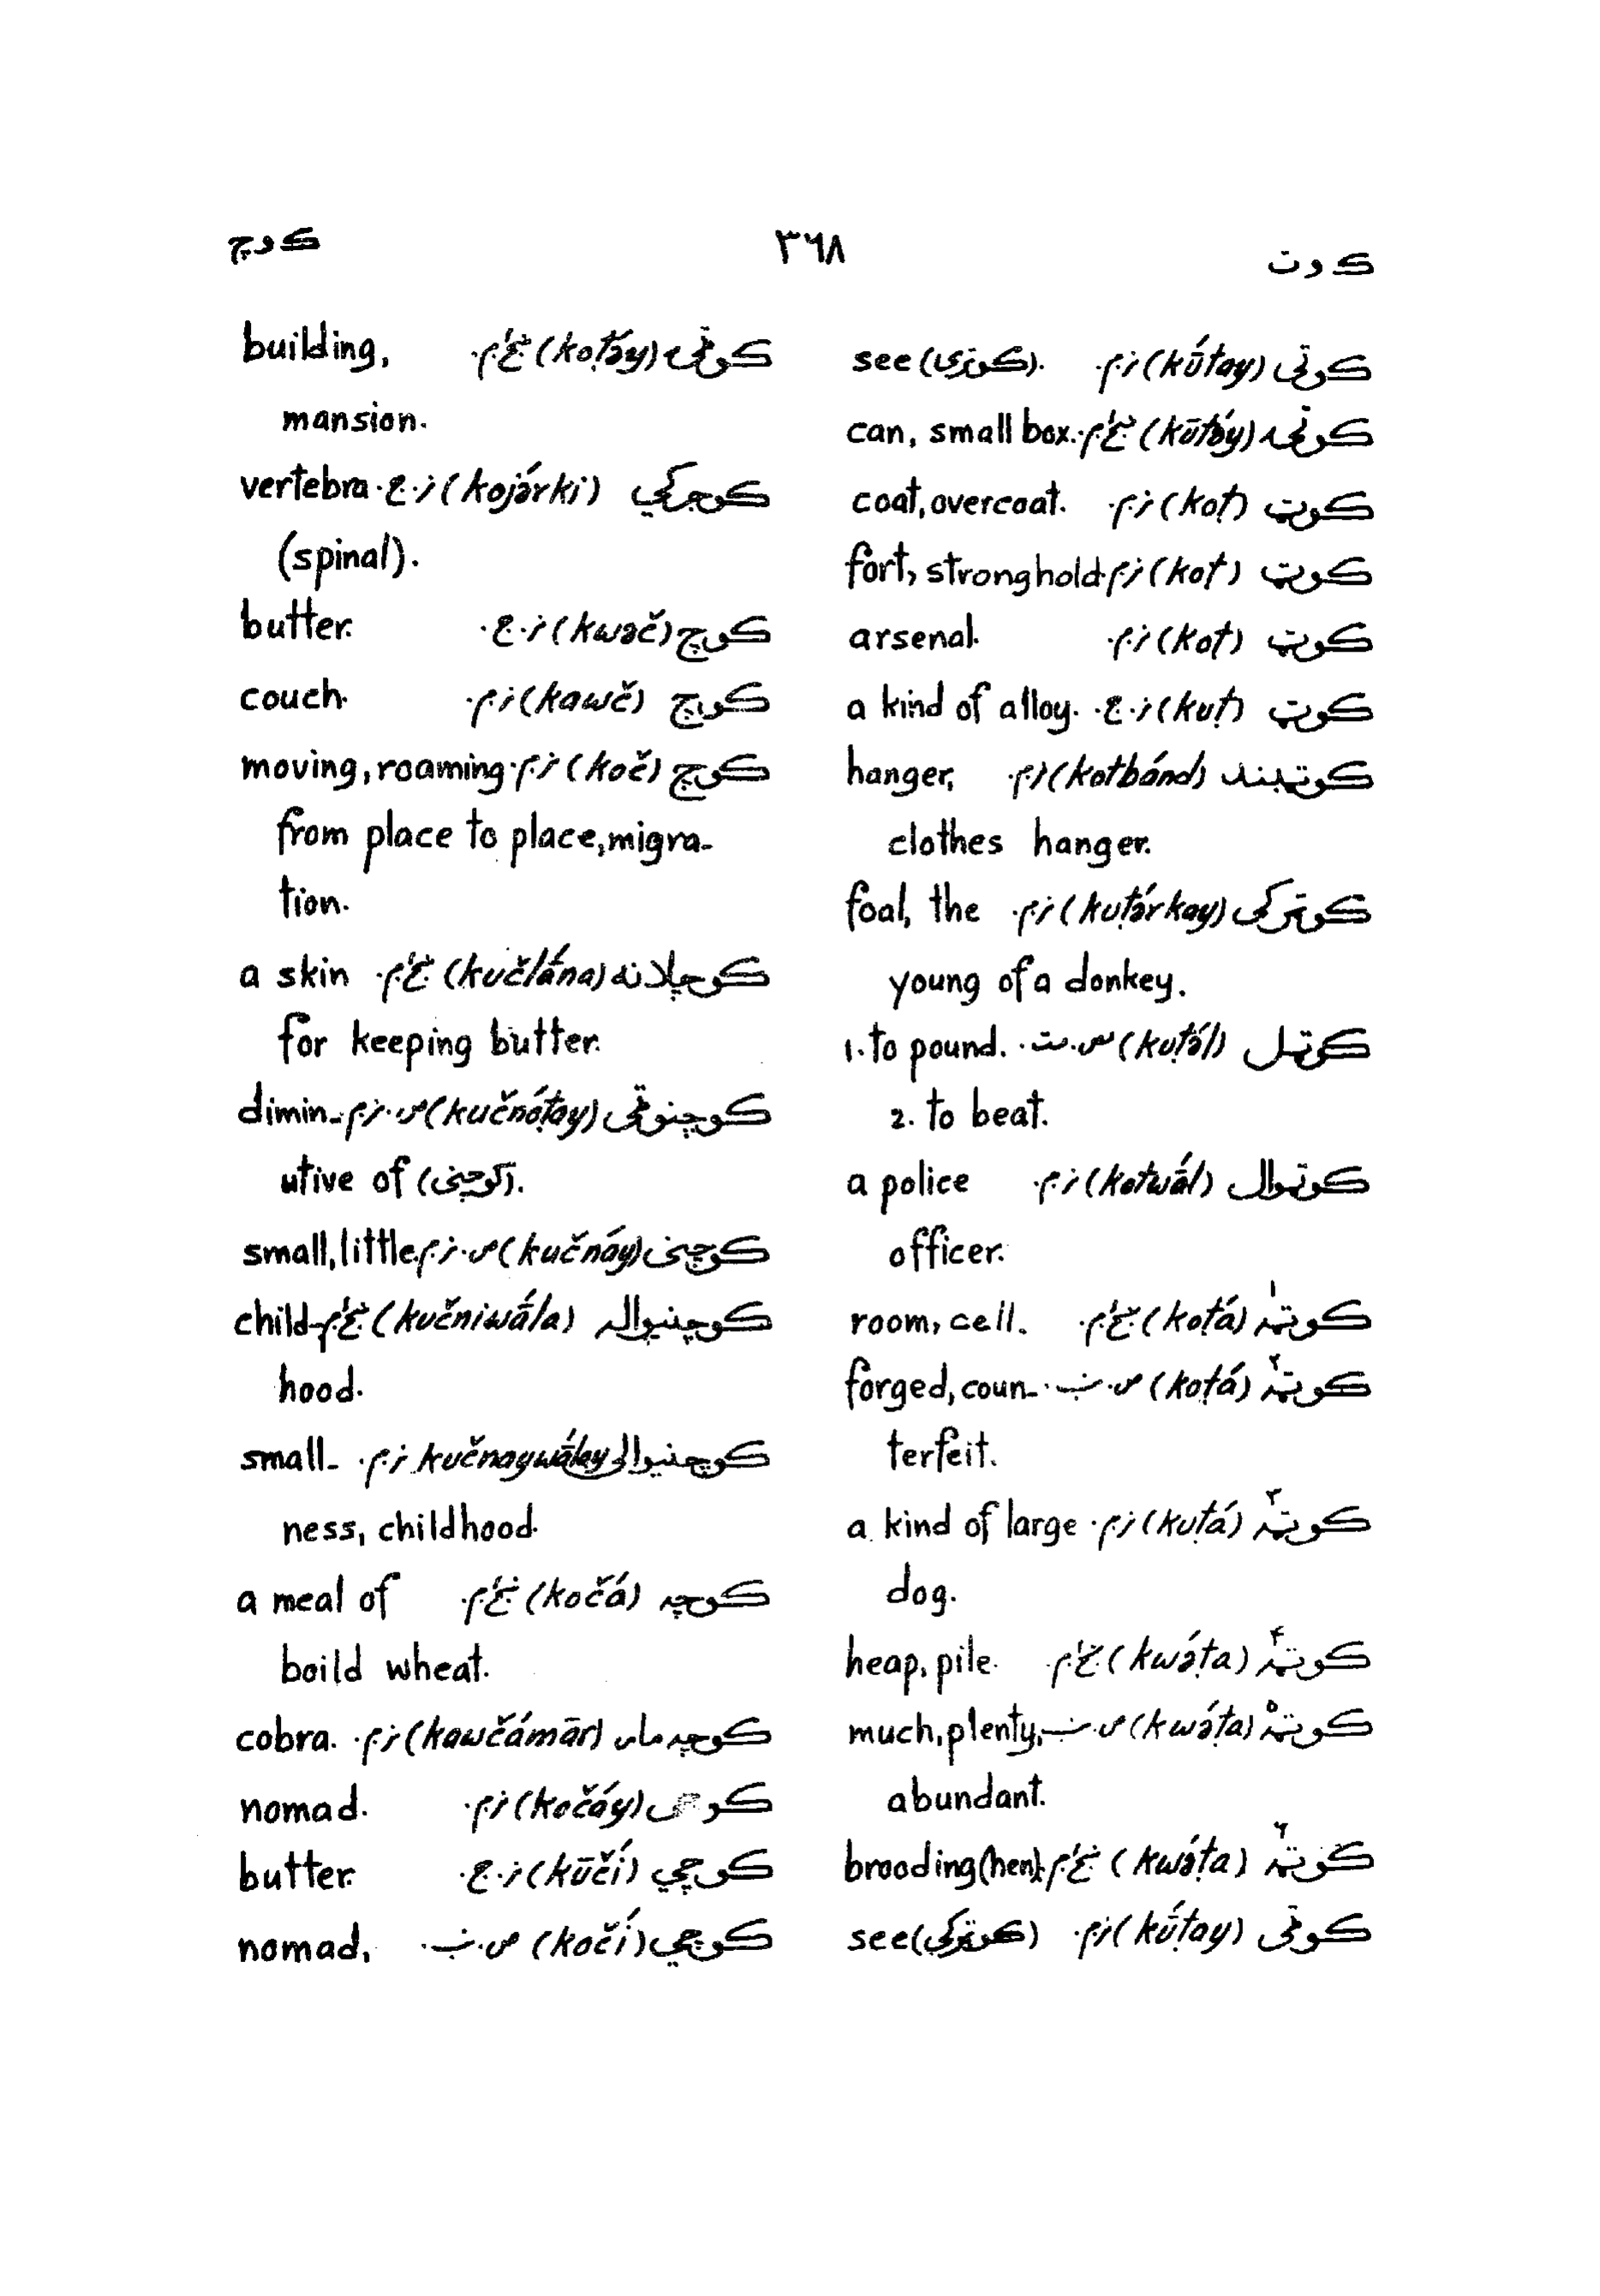 كوت ٣٦٨ كوچ
كوتی (kū́tay) نر.م. see (كوزړی).
كوتۍ (kūtə́y) ښځ.م. can, small box.
كوټ (koṭ) نر.م. coat, overcoat.
كوټ (koṭ) نر.م. fort, stronghold.
كوټ (koṭ) نر.م. arsenal.
كوټ (kuṭ) نر.ج. a kind of alloy.
كوټبند (kotbánd) نر.م. hanger,
clothes hanger.
كوټړكی (kuṭə́rkay) نر.م. foal, the
young of a donkey.
كوټل (kuṭə́l) 1. to pound.
2. to beat.
كوټوال (kotwā́l) نر.م. a police
officer.
كوټه١ (koṭá) ښځ.م. room, cell.
كوټه٢ (koṭá) ص.ب. forged, coun-
terfeit.
كوټه٣ (kuṭá) نر.م. a kind of large
dog.
كوټه۴ (kwə́ṭa) ښځ.م. heap, pile.
كوټه٥ (kwə́ṭa) ص.ب. much, plenty,
abundant.
كوټه٦ (kwə́ṭa) ښځ.م. brooding (hen).
كوټی (kū́ṭay) نر.م. see (كوټړكی)
كوټۍ (koṭə́y) ښځ.م. building,
mansion.
كوجركي (kojə́rki) نر.ج. vertebra
(spinal).
كوچ (kwəč) نر.ج. butter.
كوچ (kawč) نر.م. couch.
كوچ (koč) نر.م. moving, roaming
from place to place, migra-
tion.
كوچلانه (kučlā́na) ښځ.م. a skin
for keeping butter.
كوچنوټی (kučnóṭay) ص.نر.م. dimin-
utive of (كوچنی).
كوچنی (kučnáy) ص.نر.م. small, little.
كوچنيواله (kučniwā́la) ښځ.م. child-
hood.
كوچنيوالی kučnaywā́lay نر.م. small-
ness, childhood.
كوچه (kočá) ښځ.م. a meal of
boild wheat.
كوچه مار (kawčámār) نر.م. cobra.
كوچی (kočáy) نر.م. nomad.
كوچي (kūčí) نر.ج. butter.
كوچي (kočí) ص.ب. nomad,